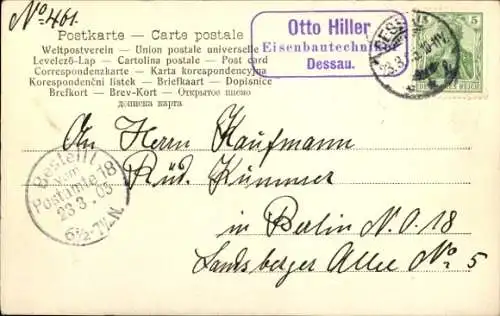 No 461.
Postkarte – Carte postale
Weltpostverein – Union postale universelle
Levelező-Lap – Cartolina postale – Post card
Correspondenzkarte – Karta korespondencyjna
Korespondenční lístek – Briefkaart – Dopisnice
Brefkort – Brev-Kort – Открытое письмо
дописна карта
Otto Hiller
Eisenbautechniker
Dessau.
DESSAU
23.3.
5
DEUTSCHES REICH
Bestellt
vom
Postamte 18
23.3.03
6½-7½N.
An Herrn Kaufmann
Rud. Kummer
in Berlin N.O. 18
Landsberger Allee No 5